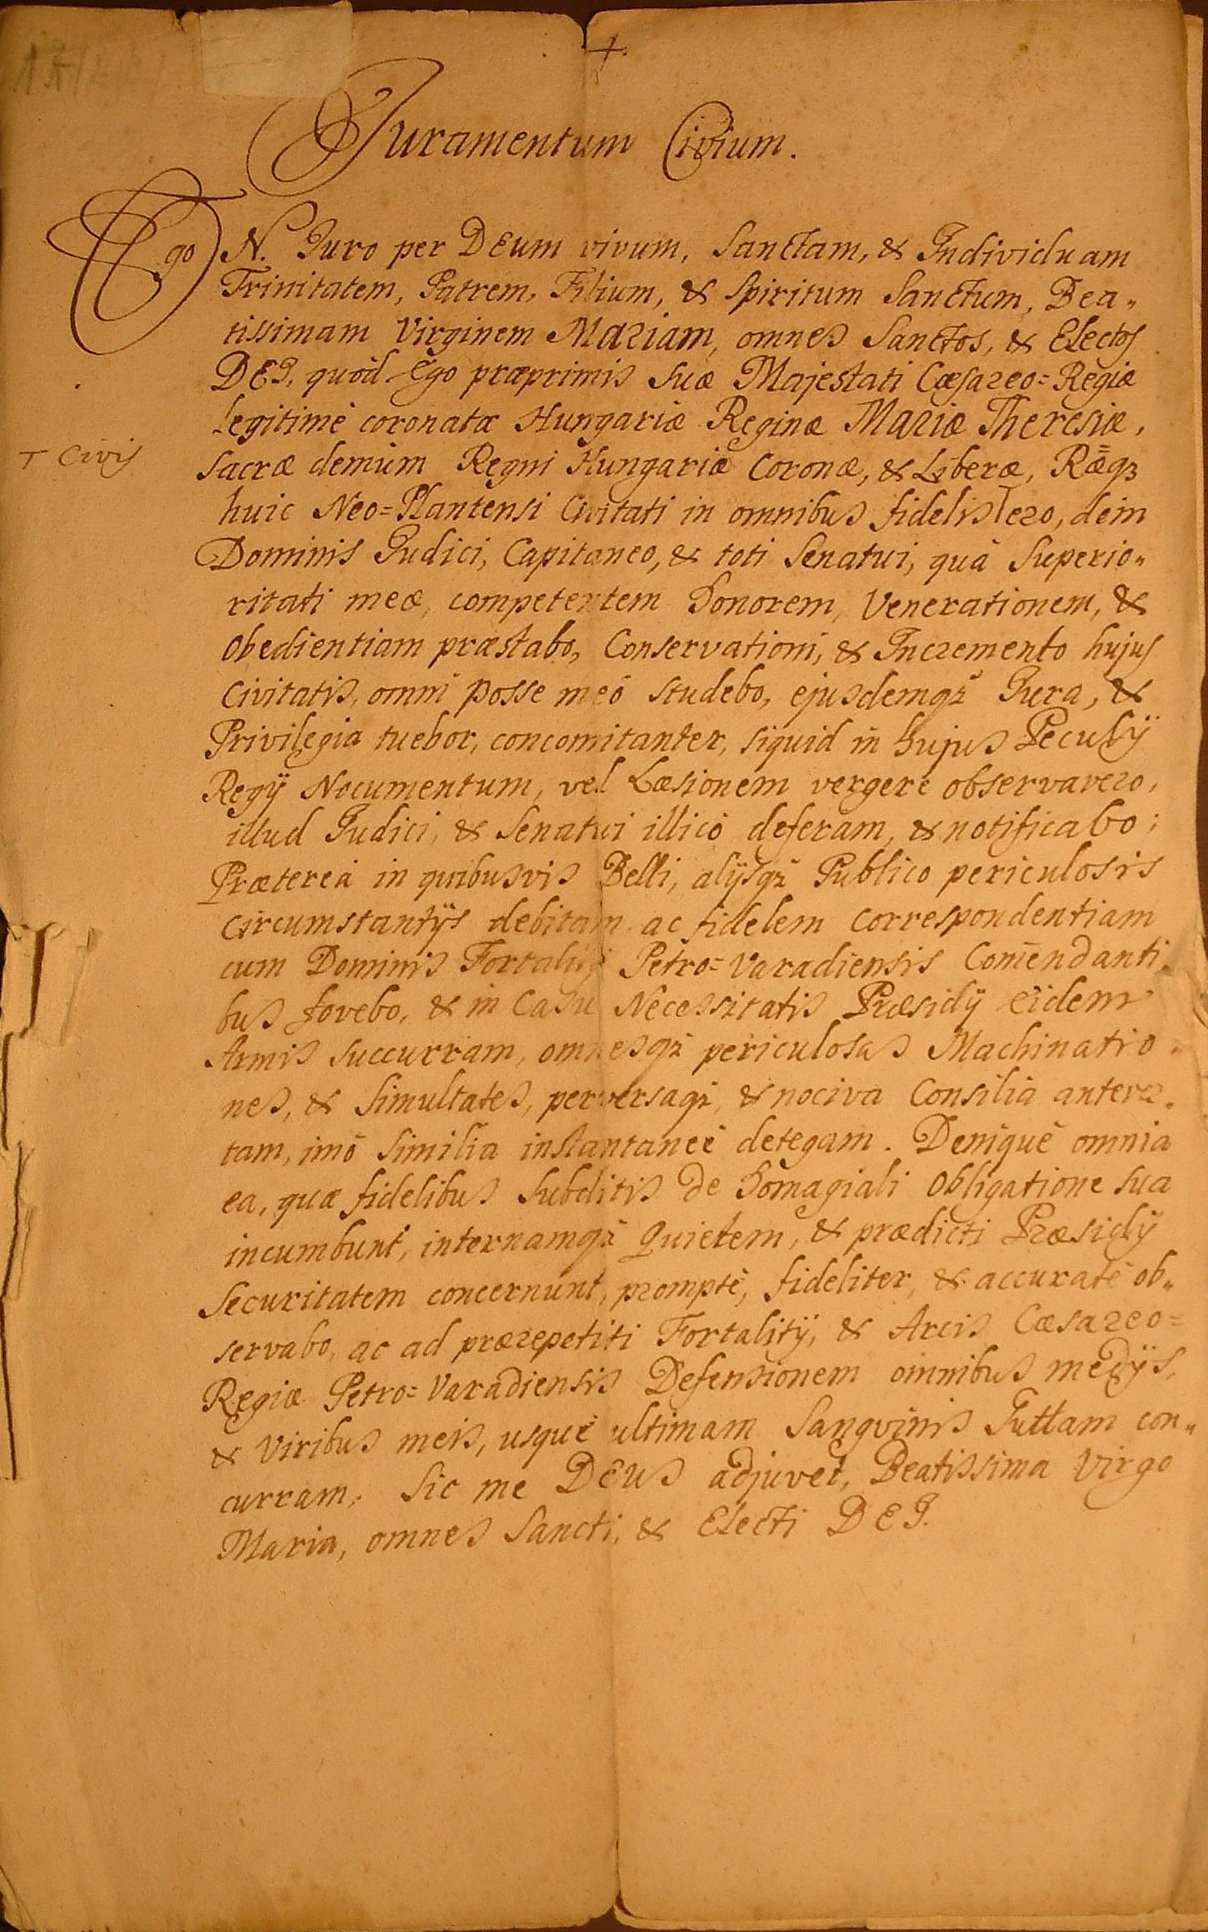 +.
Juramentum Civium.
Ego N. Juro per DEum vivum, Sanctam, & Individuam
Trinitatem, Patrem, Filium, & Spiritum Sanctum, Bea=
tissimam Virginem Mariam, omnes Sanctos, & Electos
DEI, quòd Ego præprimis Suæ Majestati Cæsareo=Regiæ
legitimè coronatæ Hungariæ Reginæ Mariæ Theresiæ,
Sacræ demùm Regni Hungariæ Coronæ, & Liberæ, Ræ̃gꝫ
huic Neo=Plantensi Civitati in omnibus fidelis ⊤ ero, dein
⊤ Civis
Dominis Judici, Capitaneo, & toti Senatui, quà Superio=
ritati meæ, competentem Honorem, Venerationem, &
Obedientiam præstabo, Conservationi, & Incremento hujus
Civitatis, omni posse meo studebo, ejusdemqꝫ Jura, &
Privilegia tuebor, concomitanter, siquid in hujus Peculÿ
Regÿ Nocumentum, vel Læsionem vergere observavero,
illud Judici, & Senatui illicò deferam, & notificabo;
Prætereà in quibusvis Belli, alÿsqꝫ Publico periculosis
Circumstantÿs debitam ac fidelem correspondentiam
cum Dominis Fortalitÿ Petro=Varadiensis Com̄endanti=
bus fovebo, & in Casu Necessitatis Præsidÿ eidem
Armis succurram, omnesqꝫ periculosas Machinatio=
nes, & Simultates, perversaqꝫ, & nociva Consilia anterer=
tam, imò similia instantaneè detegam. Deniquè omnia
ea, quæ fidelibus Subditis de Homagiali Obligatione sua
incumbunt, internamqꝫ Quietem, & prædicti Præsidÿ
Securitatem concernunt, promptè, fideliter, & accuratè ob=
servabo, ac ad prærepetiti Fortalitÿ, & Arcis Cæsareo=
Regiæ Petro=Varadiensis Defensionem omnibus medÿs,
& Viribus meis, usquè ultimam Sangvinis Guttam con=
curram, Sic me DEus adjuvet, Beatissima Virgo
Maria, omnes Sancti, & Electi DEI.